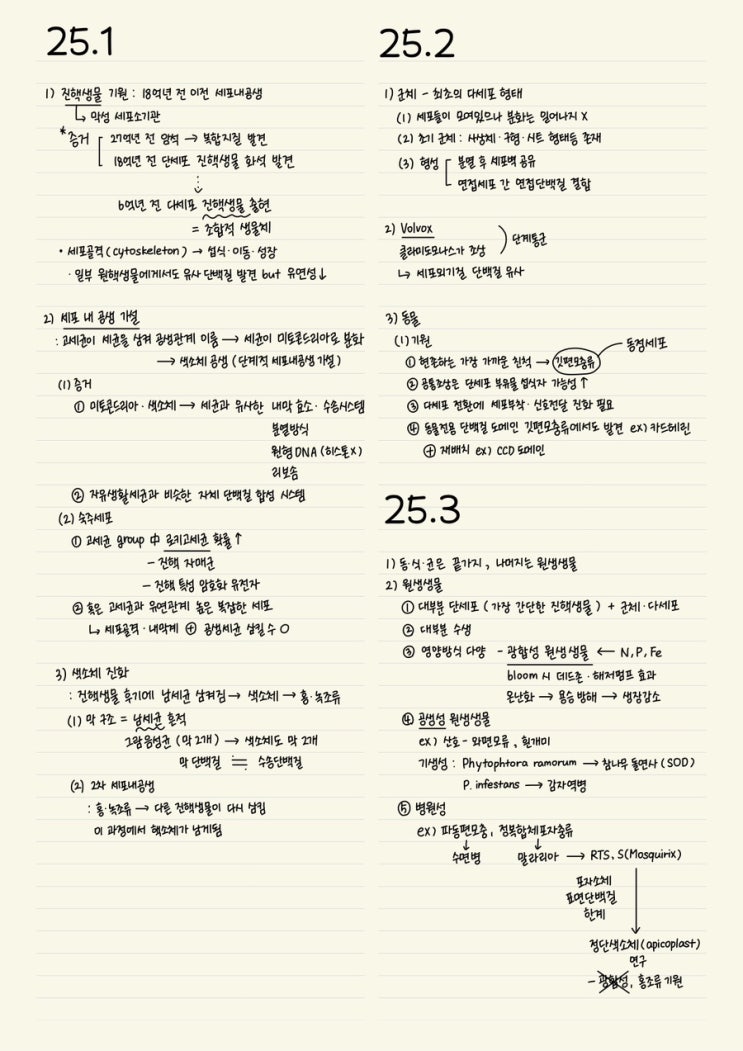 25.1
1) 진핵생물 기원 : 18억년 전 이전 세포내공생
↳ 막성 세포소기관
* 증거 27억년 전 암석 → 복합지질 발견
18억년 전 단세포 진핵생물 화석 발견
6억년 전 다세포 진핵생물 출현
= 조합적 생물체
• 세포골격(cytoskeleton) → 섭식·이동·성장
· 일부 원핵생물에게서도 유사 단백질 발견 but 유연성↓
2) 세포 내 공생 가설
: 고세균이 세균을 삼켜 공생관계 이룸 → 세균이 미토콘드리아로 분화
→ 색소체 공생 (단계적 세포내공생 가설)
(1) 증거
① 미토콘드리아·색소체 → 세균과 유사한 내막 효소·수송시스템
분열방식
원형 DNA (히스톤X)
리보솜
② 자유생활세균과 비슷한 자체 단백질 합성 시스템
(2) 숙주세포
① 고세균 group 中 로키고세균 확률↑
- 진핵 자매군
- 진핵 특성 암호화 유전자
② 혹은 고세균과 유연관계 높은 복잡한 세포
↳ 세포골격·내막계 ⊕ 공생세균 삼킬 수 O
3) 색소체 진화
: 진핵생물 후기에 남세균 삼켜짐 → 색소체 → 홍·녹조류
(1) 막 구조 = 남세균 흔적
그람음성균 (막 2개) → 색소체도 막 2개
막 단백질 ≒ 수송단백질
(2) 2차 세포내공생
: 홍·녹조류 → 다른 진핵생물이 다시 삼킴
이 과정에서 핵소체가 남게됨
25.2
1) 군체 - 최초의 다세포 형태
(1) 세포들이 모여있으나 분화는 일어나지 X
(2) 초기 군체 : 사상체·구형·시트 형태등 존재
(3) 형성 분열 후 세포벽 공유
연접세포 간 연접단백질 결합
2) Volvox
클라미도모나스가 조상 단계통군
↳ 세포외기질 단백질 유사
3) 동물
(1) 기원
① 현존하는 가장 가까운 친척 → 깃편모충류 동정세포
② 공통조상은 단세포 부유물 섭식자 가능성↑
③ 다세포 전환에 세포부착·신호전달 진화 필요
④ 동물전용 단백질 도메인 깃편모충류에서도 발견 ex) 카드헤린
⊕ 재배치 ex) CCD 도메인
25.3
1) 동·식·균은 끝가지, 나머지는 원생생물
2) 원생생물
① 대부분 단세포 (가장 간단한 진핵생물) + 군체·다세포
② 대부분 수생
③ 영양방식 다양 - 광합성 원생생물 ← N, P, Fe
bloom 시 데드존·해저펌프 효과
온난화 → 용승 방해 → 생장감소
④ 공생성 원생생물
ex) 산호 - 와편모류, 흰개미
기생성 : Phytophtora ramorum → 참나무 돌연사 (SOD)
P. infestans → 감자역병
⑤ 병원성
ex) 파동편모충, 정복합체포자충류
↓ ↓
수면병 말라리아 → RTS, S(Mosquirix)
포자소체
표면단백질
한계
정단색소체(apicoplast)
연구
- 광합성, 홍조류 기원